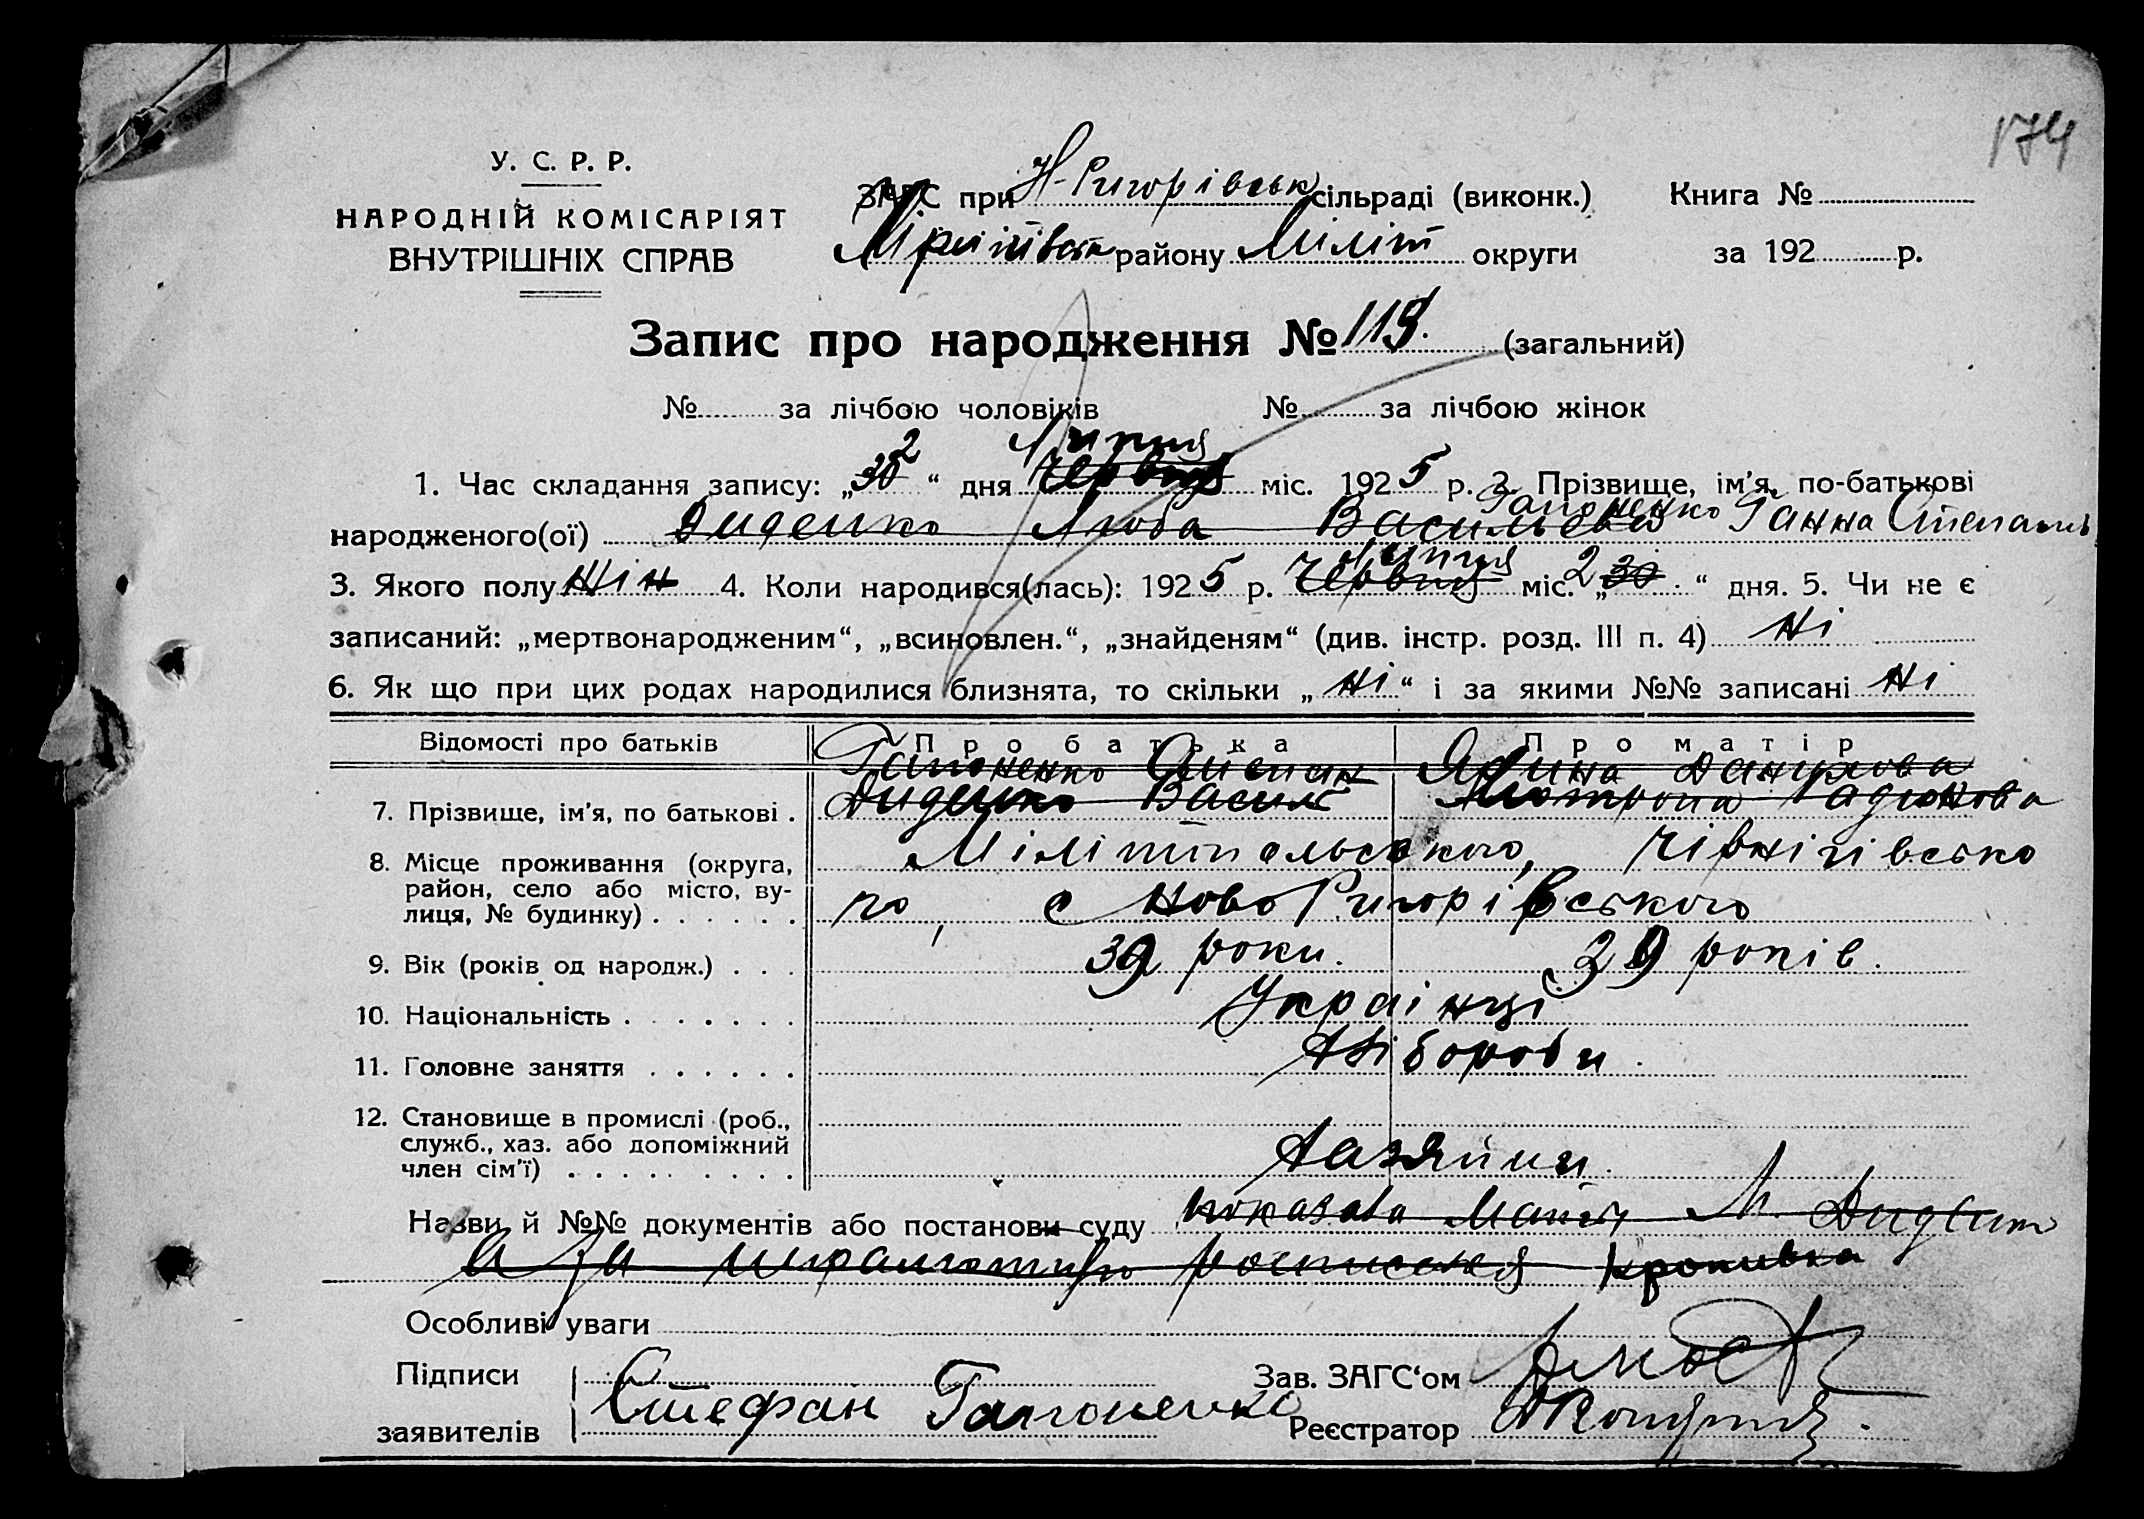 174
У. С. Р. Р.
НАРОДНІЙ КОМІСАРІЯТ
ВНУТРІШНІХ СПРАВ
ЗАГС при Н-Ригорівськ сільраді (виконк.)
району Міліт округи
Книга №
за 192 р.
Запис про народження № 119. (загальний)
№ за лічбою чоловіків № за лічбою жінок
2 Липня
1. Час складання запису: „30“ дня Червня міс. 1925 р. 2. Прізвище, ім'я, по-батькові
Гапоненко Ганна Степанів
народженого(ої) Диденко Люба Васильова
Липця
3. Якого полу жін 4. Коли народився(лась): 1925 р. Червня міс. 2 „30“ дня. 5. Чи не є
записаний: „мертвонародженим“, „всиновлен.“, „знайденям“ (див. інстр. розд. III п. 4) ні
6. Як що при цих родах народилися близнята, то скільки „ні“ і за якими №№ записані ні
Відомості про батьків Про батька Про матір
Гапоненко Данилова
7. Прізвище, ім'я, по батькові . Диденко Василь Мотрона
8. Місце проживання (округа, Мілітопольського, Чірнігівсько
район, село або місто, ву-
лиця, № будинку) . . . . . . го, с НовоРигорівського
9. Вік (років од народж.) . . . 39 роки. 29 років.
10. Національність . . . . . . . Українці
11. Головне заняття . . . . . . Хліборови.
12. Становище в промислі (роб.,
служб., хаз. або допоміжний
член сім'ї) . . . . . . . . . Хазяйни.
Назви й №№ документів або постанови суду показала Мати М. Диденко
А за роспісався Кропивка
Особливі уваги
Підписи
заявителів Стефан Гапоненко
Зав. ЗАГС'ом
Реєстратор